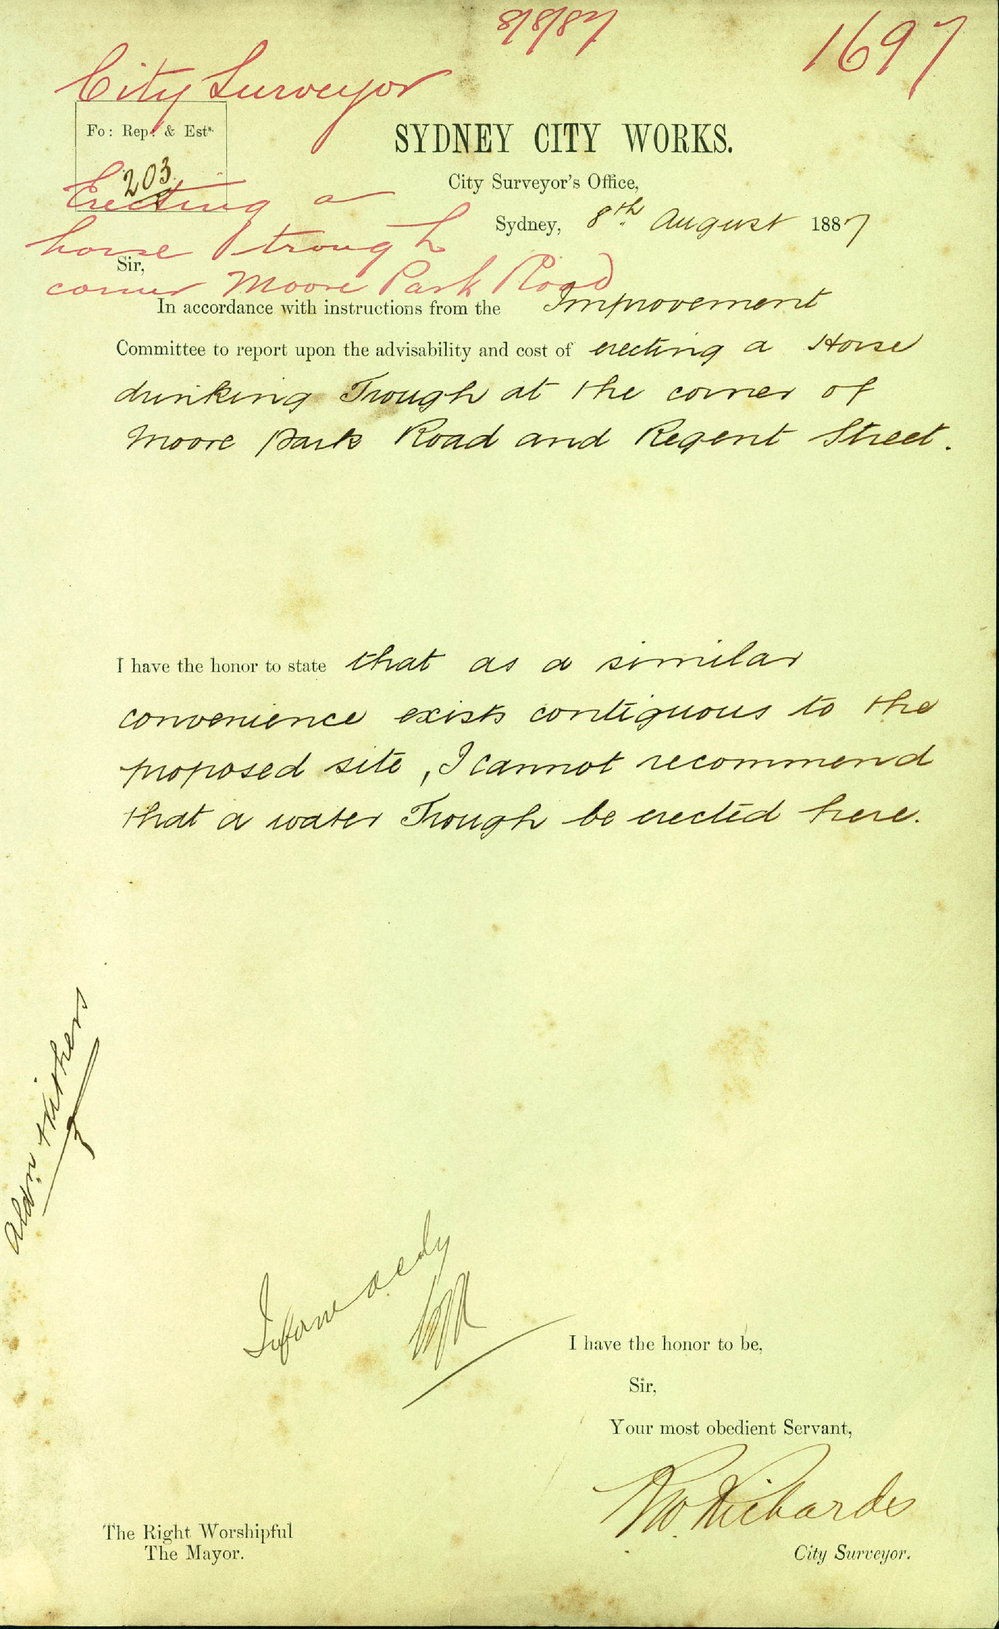 8/8/87
1697
City Surveyor
Fo: Rep: & Est^s.
203
Erecting a
horse trough
corner Moore Park Road
SYDNEY CITY WORKS.
City Surveyor's Office,
Sydney, 8th. August 1887
Sir,
In accordance with instructions from the Improvement
Committee to report upon the advisability and cost of erecting a Horse
drinking Trough at the corner of
Moore Park Road and Regent Street.
I have the honor to state that as a similar
convenience exists contiguous to the
proposed site, I cannot recommend
that a water Trough be erected here.
Aldn. Withers
Inform
I have the honor to be,
Sir,
Your most obedient Servant,
Richards
City Surveyor.
The Right Worshipful
The Mayor.